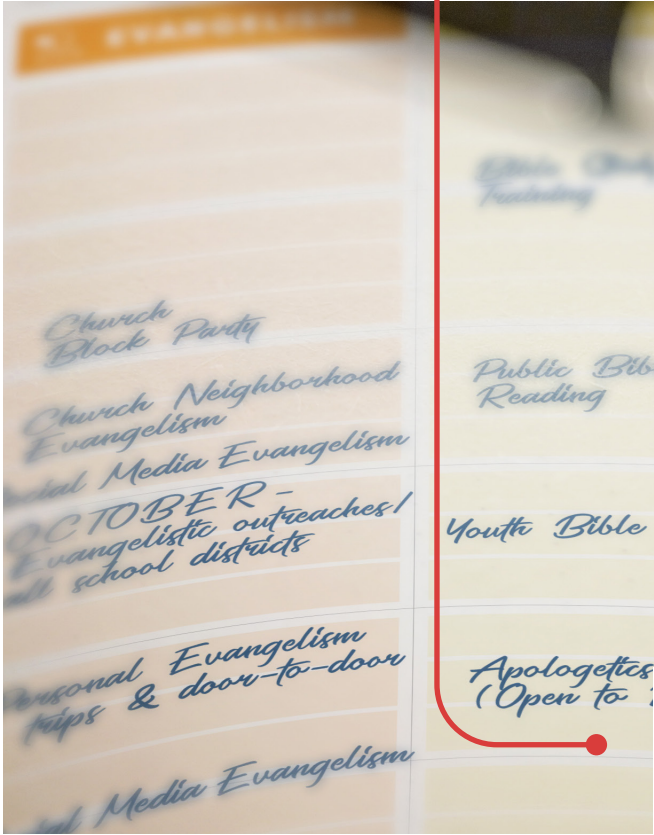 EVANGELISM
Church
Block Party
Church Neighborhood
Evangelism
Social Media Evangelism
OCTOBER -
Evangelistic outreaches/
all school districts
Personal Evangelism
trips & door-to-door
Social Media Evangelism
Bible Study
Training
Public Bib
Reading
Youth Bible
Apologetics
(Open to